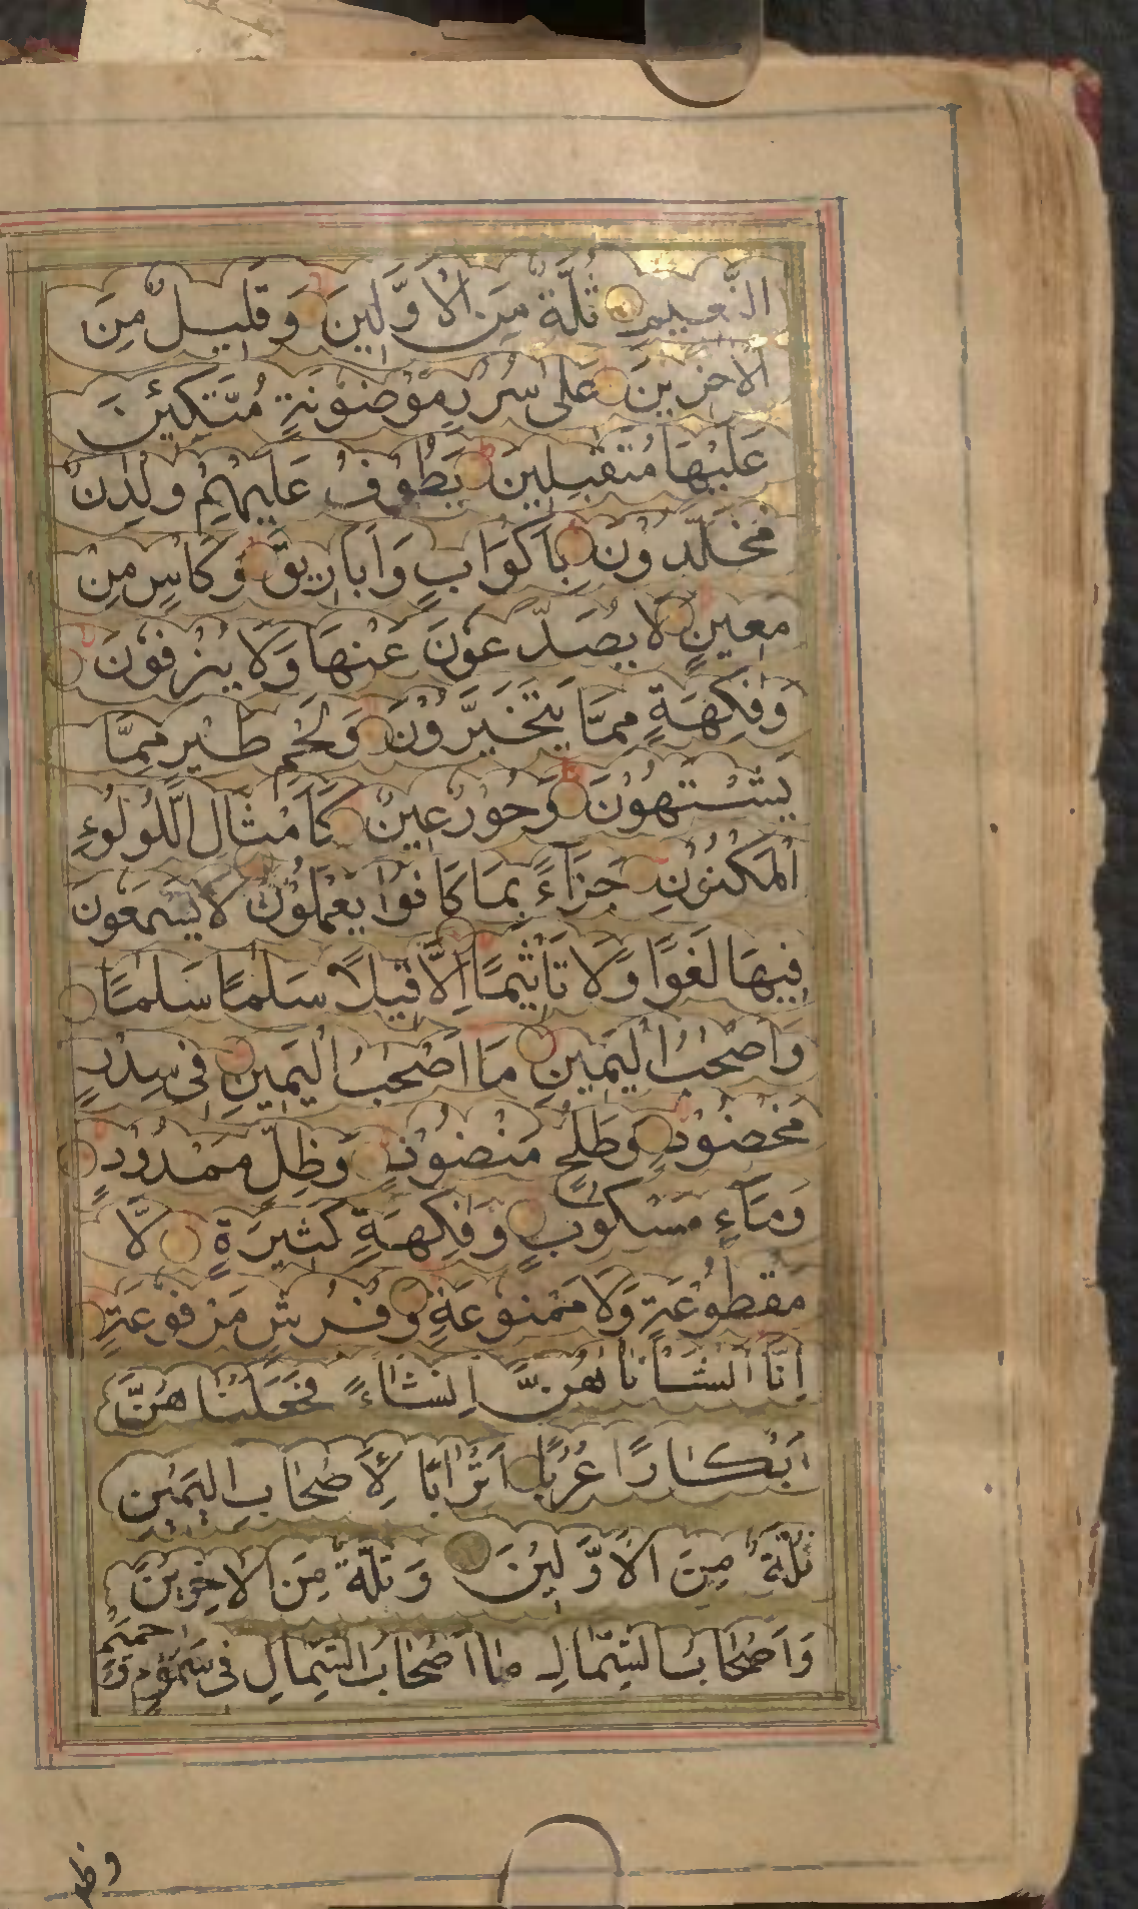 النَّعِيمِ ثُلَّةٌ مِنَ الْاَوَّلِينَ وَقَلِيلٌ مِنَ
الْاٰخِرِينَ عَلٰى سُرُرٍ مَوْضُونَةٍ مُتَّكِئِينَ
عَلَيْهَا مُتَقٰبِلِينَ يَطُوْفُ عَلَيْهِمْ وِلْدٰنٌ
مُخَلَّدُونَ بِاَكْوَابٍ وَاَبَارِيقَ وَكَاْسٍ مِنْ
مَعِينٍ لَا يُصَدَّعُونَ عَنْهَا وَلَا يُنْزِفُوْنَ
وَفٰكِهَةٍ مِمَّا يَتَخَيَّرُوْنَ وَلَحْمِ طَيْرٍ مِمَّا
يَشْتَهُوْنَ وَحُوْرٌ عِيْنٌ كَاَمْثَالِ اللُّؤْلُوءِ
الْمَكْنُوْنِ جَزَآءً بِمَا كَانُوْا يَعْمَلُوْنَ لَا يَسْمَعُوْنَ
فِيهَا لَغْوًا وَلَا تَاْثِيْمًا اِلَّا قِيلًا سَلٰمًا سَلٰمًا
وَاَصْحٰبُ الْيَمِينِ مَا اَصْحٰبُ الْيَمِينِ فِى سِدْرٍ
مَخْضُوْدٍ وَطَلْحٍ مَنْضُوْدٍ وَظِلٍّ مَمْدُوْدٍ
وَمَآءٍ مَسْكُوبٍ وَفٰكِهَةٍ كَثِيْرَةٍ لَّا
مَقْطُوْعَةٍ وَلَا مَمْنُوعَةٍ وَفُرُشٍ مَرْفُوْعَةٍ
اِنَّا اَنْشَاْنَاهُنَّ اِنْشَاءً فَجَعَلْنَاهُنَّ
اَبْكَارًا عُرُبًا اَتْرَابًا لِاَصْحَابِ الْيَمِيْنِ
ثُلَّةٌ مِنَ الْاَوَّلِيْنَ وَثُلَّةٌ مِنَ الْاٰخِرِيْنَ
وَاَصْحَابُ الشِّمَالِ مَا اَصْحَابُ الشِّمَالِ فِى سَمُوْمٍ وَحَمِيْمٍ
وظل